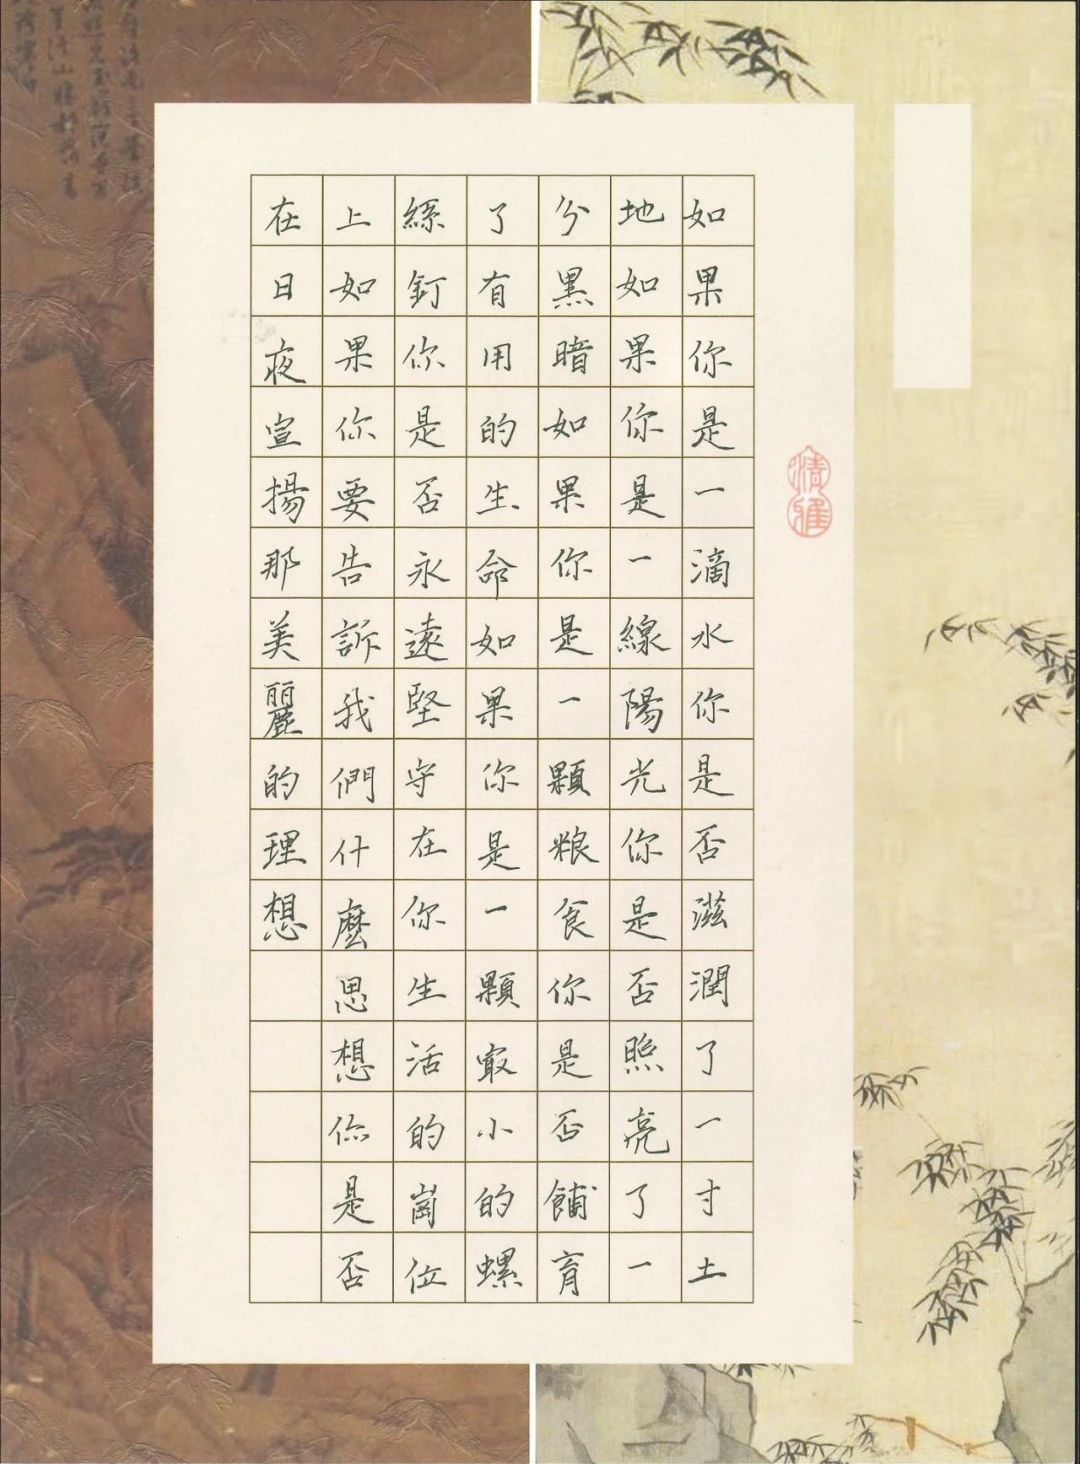 如果你是一滴水你是否滋潤了一寸土
地如果你是一線陽光你是否照亮了一
分黑暗如果你是一顆粮食你是否餔育
了有用的生命如果你是一顆㝡小的螺
絲釘你是否永遠堅守在你生活的崗位
上如果你要告訴我們什麼思想你是否
在日夜宣揚那美麗的理想
清雅